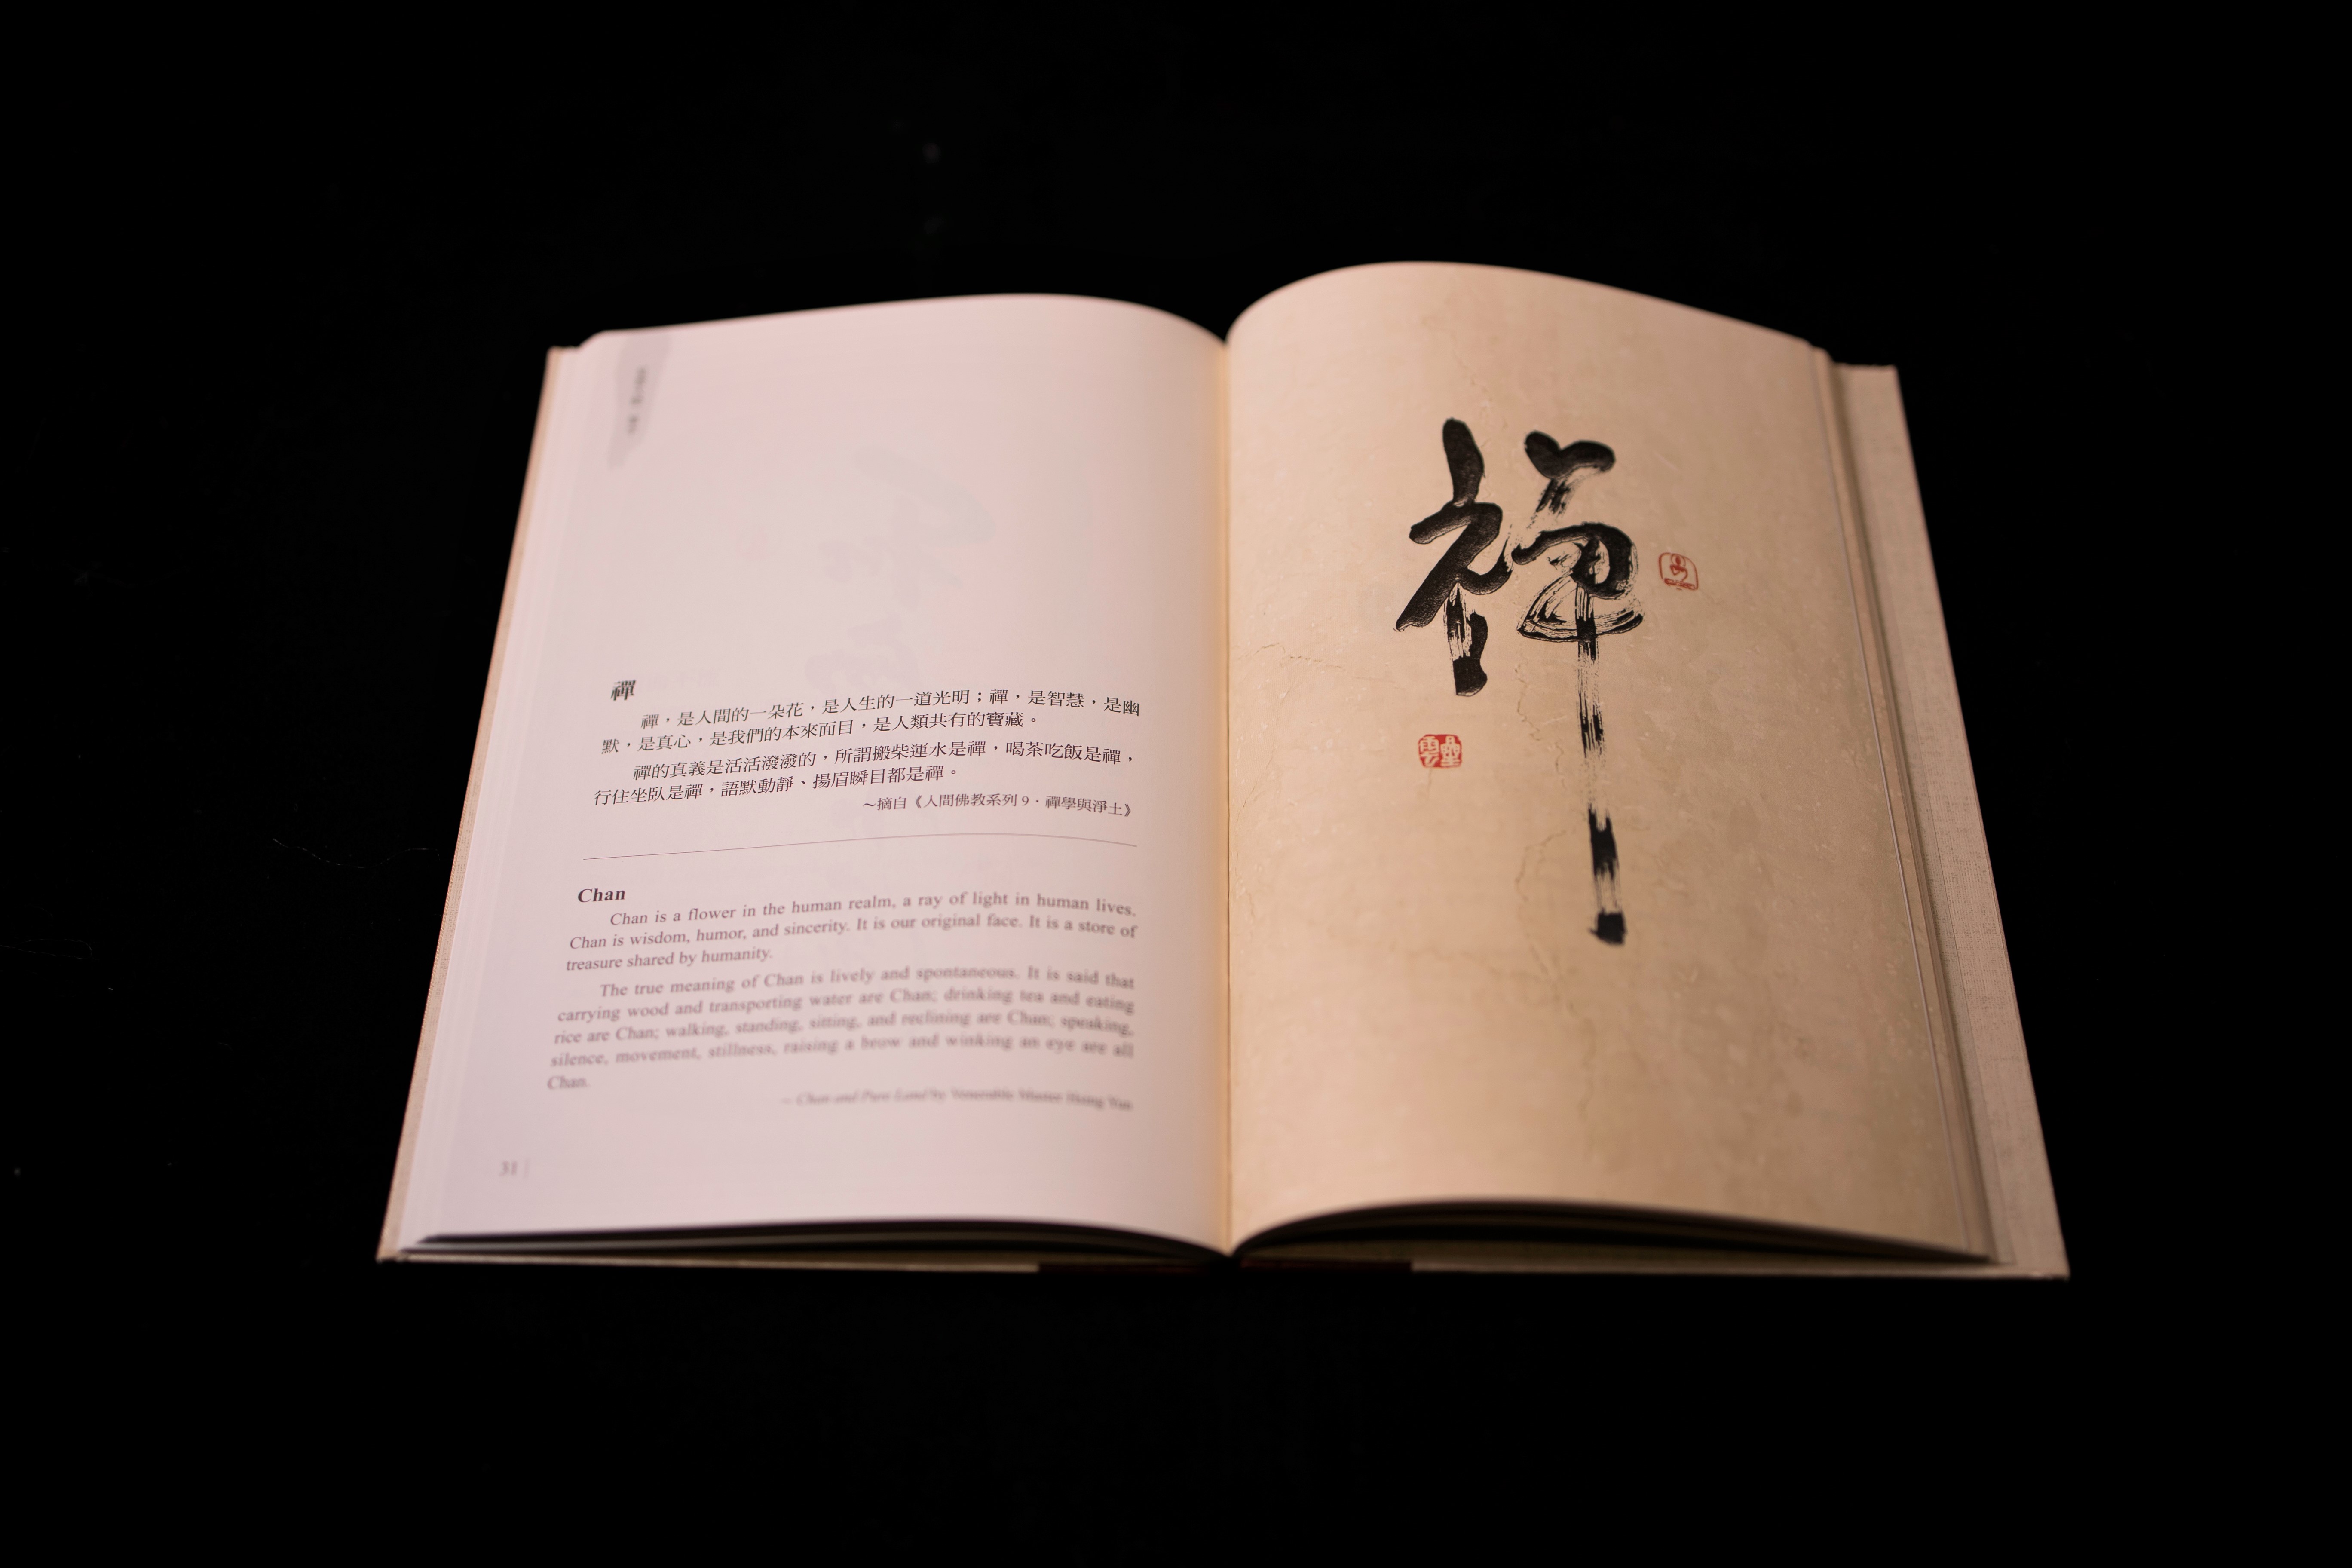 禪
禪，是人間的一朵花，是人生的一道光明；禪，是智慧，是幽
默，是真心，是我們的本來面目，是人類共有的寶藏。
禪的真義是活活潑潑的，所謂搬柴運水是禪，喝茶吃飯是禪，
行住坐臥是禪，語默動靜、揚眉瞬目都是禪。
～摘自《人間佛教系列9．禪學與淨土》
Chan
Chan is a flower in the human realm, a ray of light in human lives.
Chan is wisdom, humor, and sincerity. It is our original face. It is a store of
treasure shared by humanity.
The true meaning of Chan is lively and spontaneous. It is said that
carrying wood and transporting water are Chan; drinking tea and eating
rice are Chan; walking, standing, sitting, and reclining are Chan; speaking,
silence, movement, stillness, raising a brow and winking an eye are all
Chan.
— Chan and Pure Land by Venerable Master Hsing Yun
31
禪
星雲